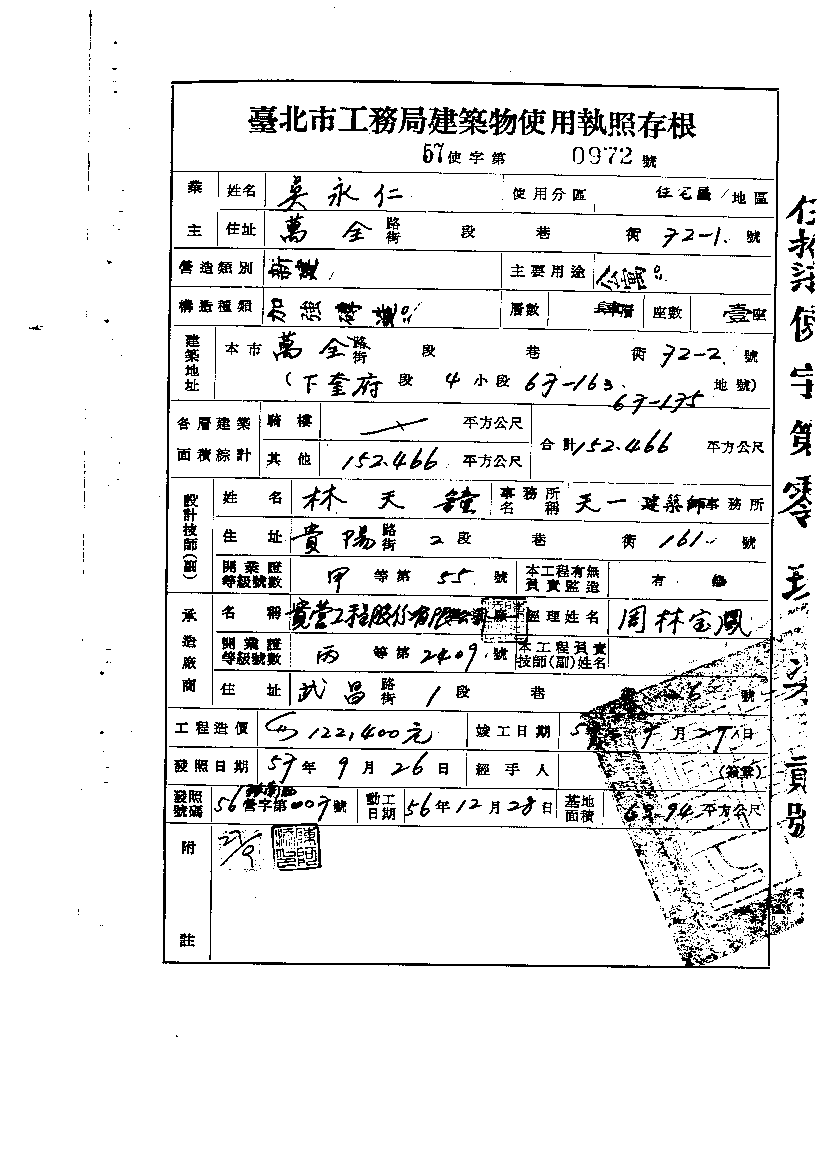 臺北市工務局建築物使用執照存根
57使字第 0972 號
業主 姓名 吳永仁 使用分區 住宅區 地區
住址 萬全 路街 段 巷 衖 72-1 號
營造類別 新建 主要用途 公寓
構造種類 加強磚造 層數 肆層 座數 壹座
建築地址 本市 萬全 路街 段 巷 衖 72-2 號
(下奎府 段 4 小段 67-163 地號)
67-175
各層建築面積綜計 騎樓 平方公尺 合計 152.466 平方公尺
其他 152.466 平方公尺
設計技師(副) 姓名 林天鐘 事務所名稱 天一建築師事務所
住址 貴陽 路街 2段 巷 衖 161 號
開業證等級號數 甲 等第 55 號 本工程有無負責監造 有
承造廠商 名稱 工程股份有限公司 經理姓名 周林宝鳳
開業證等級號數 丙 等第 2409 號 本工程負責技師(副)姓名
住址 武昌 路街 1段 巷 6 號
工程造價 122,400元 竣工日期 57年9月 日
發照日期 57年9月26日 經手人 (簽章)
發照號碼 56 營字第 007 號 動工日期 56年12月28日 基地面積 平方公尺
附註
27/9
伍拾柒使字第零 號